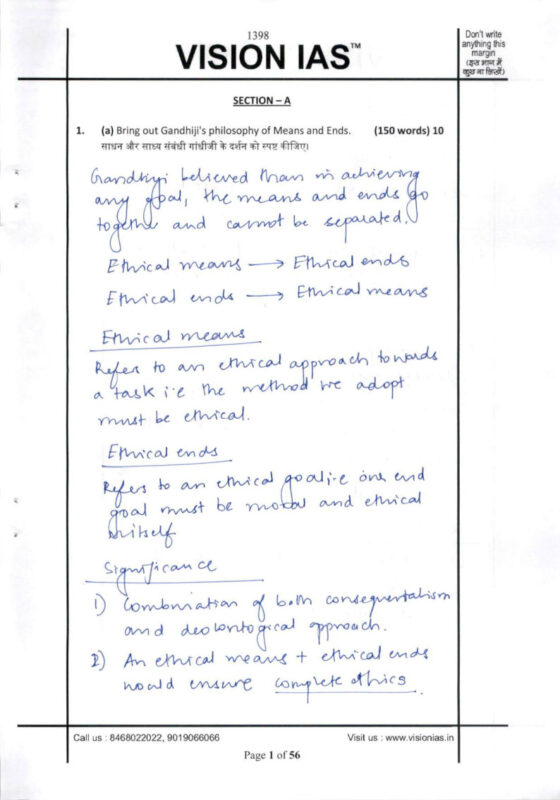 1398
VISION IAS™
Don't write
anything this
margin
(इस भाग में
कुछ ना लिखें)
SECTION – A
1. (a) Bring out Gandhiji's philosophy of Means and Ends. (150 words) 10
साधन और साध्य संबंधी गांधीजी के दर्शन को स्पष्ट कीजिए।
Gandhiji believed than in achieving
any goal, the means and ends go
together and cannot be separated.
Ethical means → Ethical ends
Ethical ends → Ethical means
Ethical means
Refers to an ethical approach towards
a task i.e the method we adopt
must be ethical.
Ethical ends
Refers to an ethical goal i.e one end
goal must be moral and ethical
in itself
Significance
1) Combination of both consequentalism
and deolontogical approach.
2) An ethical means + ethical ends
would ensure complete ethics.
Call us : 8468022022, 9019066066
Visit us : www.visionias.in
Page 1 of 56